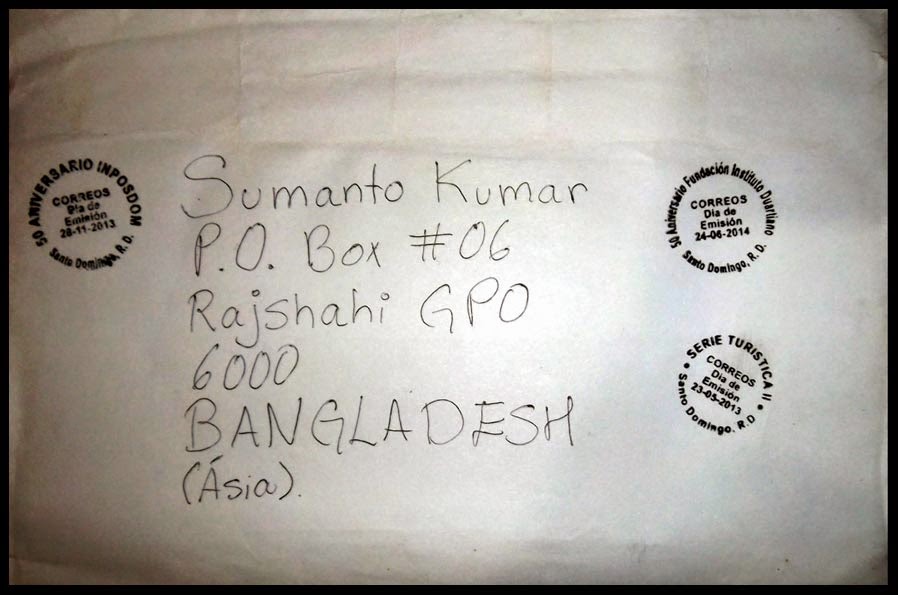 50 ANIVERSARIO INPOSDOM
CORREOS
Día de
Emisión
28-11-2013
Santo Domingo, R.D.
Sumanto Kumar
P.O. Box #06
Rajshahi GPO
6000
BANGLADESH
(Ásia).
50 Aniversario Fundación Instituto Duartiano
CORREOS
Dia de
Emisión
24-06-2014
Santo Domingo, R. D.
SERIE TURISTICA II
CORREOS
Dia de
Emisión
23-05-2013
Santo Domingo, R.D